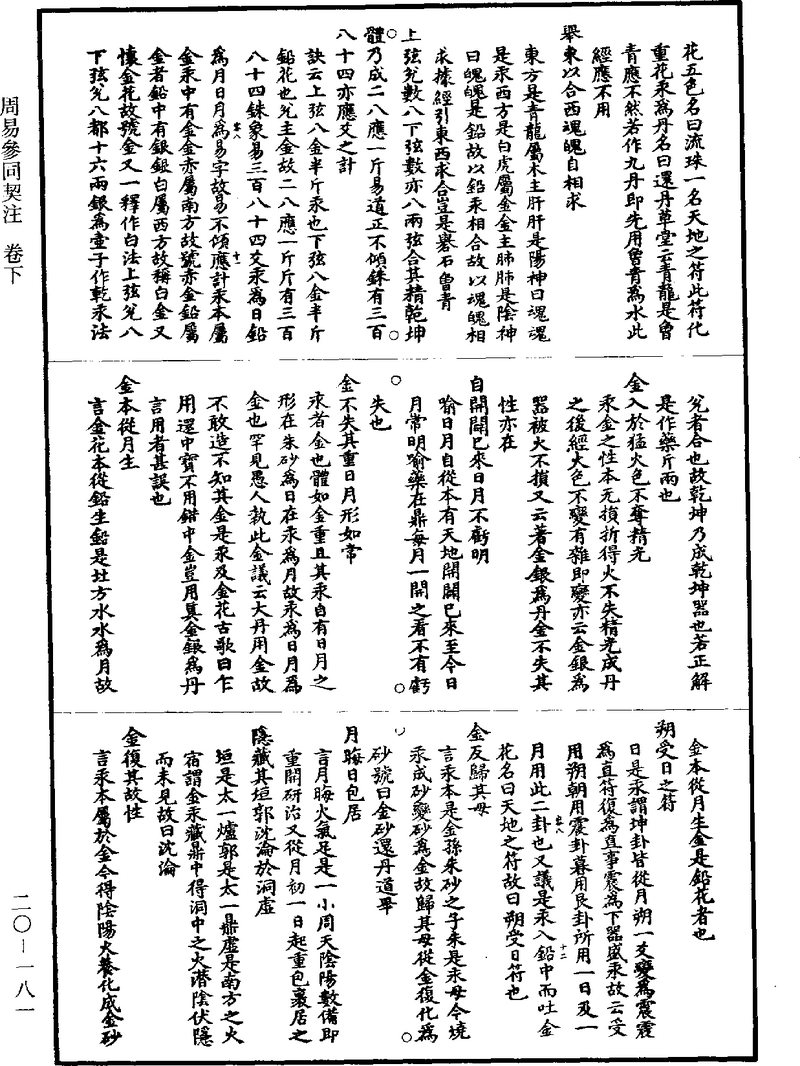 花五色名曰流珠一名天地之符此符化
重花汞為丹名曰還丹草堂云青龍是曾
青應不然若作九丹即先用曾青為水此
經應不用
舉東以合西魂魄自相求
東方是青龍屬木主肝肝是陽神曰魂魂
是汞西方是白虎屬金金主肺肺是陰神
曰魄魄是鉛故以鉛汞相合故以魂魄相
求據經引東西求合豈是礬石曾青
上弦兌數八下弦數亦八兩弦合其精乾坤
體乃成二八應一斤易道正不傾銖有三百
八十四亦應爻之計
訣云上弦八金半斤汞也下弦八金半斤
鉛花也兌主金故二八應一斤斤有三百
八十四銖象易三百八十四爻汞為日鉛
為月日月為易字故易不傾應計汞本屬
金汞中有金金亦屬南方故號赤金鉛屬
金者鉛中有銀銀白屬西方故稱白金又
懷金花故號金又一釋作白法上弦兌八
下弦兌八都十六兩銀為壷子作乾汞法
兌者合也故乾坤乃成乾坤器也若正解
是作藥斤兩也
金入於猛火色不奪精光
汞金之性本无損折得火不失精光成丹
之後經火色不變有雜即變亦云金銀為
器被火不損又云著金銀為丹金不失其
性亦在
自開闢已來日月不虧明
喻日月自從本有天地開闢已來至今日
月常明喻藥在鼎每月一開之看不有虧
失也
金不失其重日月形如常
汞者金也體如金重且其汞自有日月之
形在朱砂為日在汞為月故汞為日月為
金也罕見愚人執此金議云大丹用金故
不敢造不知其金是汞及金花古歌曰乍
用還中寶不用錯中金豈用真金銀為丹
言用者甚誤也
金本從月生
言金花本從鉛生鉛是北方水水為月故
金本從月生金是鉛花者也
朔受日之符
日是汞謂坤卦皆從月朔一爻變為震震
為直符復為直事震為下器盛汞故云受
用朔朝用震卦暮用艮卦所用一日及一
月用此二卦也又議是汞入鉛中而吐金
花名曰天地之符故曰朔受日符也
金反歸其母
言汞本是金孫朱砂之子朱是汞母今燒
汞成砂變砂為金故歸其母從金復化為
砂號曰金砂還丹道畢
月晦日包居
言月晦火氣足是一小周天陰陽數備即
重開研治又從月初一日起重包裹居之
隱藏其垣郭沈淪於洞虛
垣是太一爐郭是太一鼎虛是南方之火
宿謂金汞藏鼎中得洞中之火潛陰伏隱
而未見故曰沈淪
金復其故性
言汞本屬於金今得陰陽火養化成金砂
周易參同契注 卷下
二〇—一八一